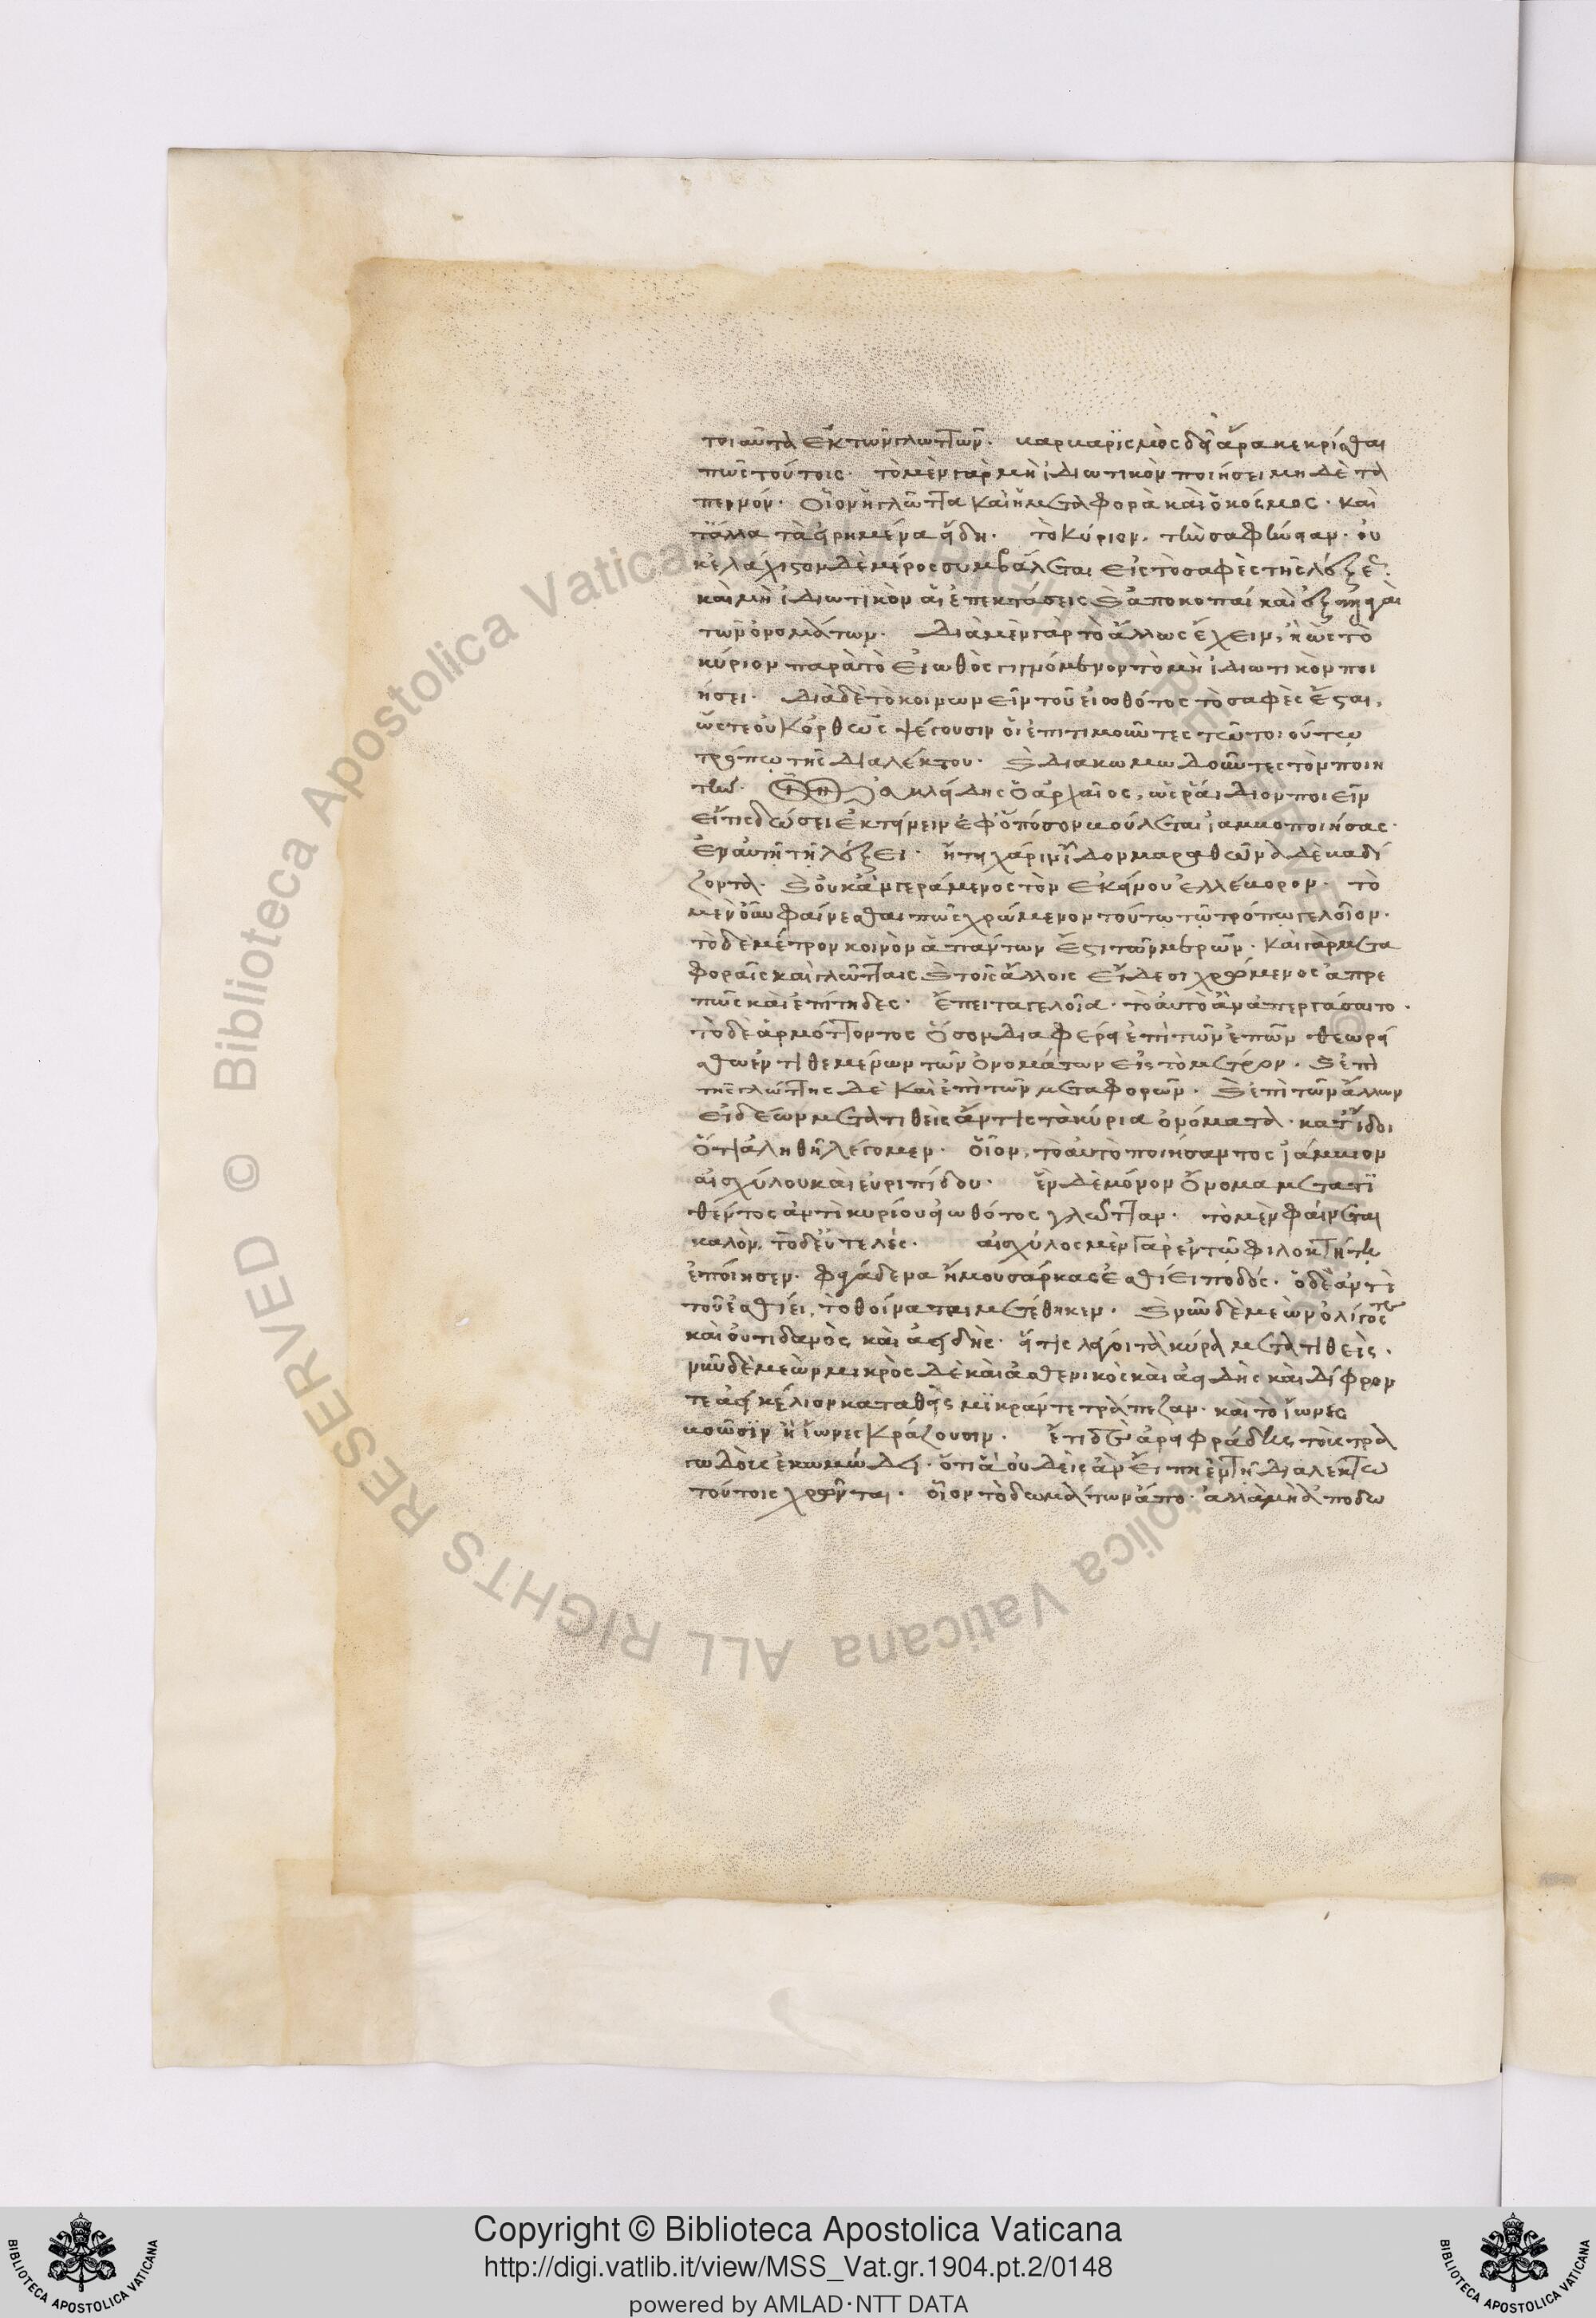 τοιαῦτα ἐκ τῶν γλωττῶν. βαρβαρϊσμὸς δεῖ ἄρα κεκρίσθαι
πῶς τούτοις. τὸ μὲν γὰρ μὴ ἰδιωτικὸν ποιήσει μηδὲ τα
πεινόν. οἷον ἡ γλῶττα καὶ ἡ μεταφορὰ καὶ ὁ κόσμος. καὶ
τἄλλα τὰ εἰρημένα εἴδη. τὸ κύριον. τὴν σαφήνειαν. οὐ
κ ἐλάχιστον δὲ μέρος συμβάλεται εἰς τὸ σαφὲς τῆς λέξεως
καὶ μὴ ἰδιωτικὸν αἱ ἐπεκτάσεις καὶ ἀποκοπαὶ καὶ
τῶν ὀνομάτων. διὰ μὲν γὰρ τὸ ἄλλως ἔχειν, ἢ ὡς τὸ
κύριον παρὰ τὸ εἰωθὸς γιγνόμενον τὸ μὴ ἰδιωτικὸν ποι
ήσει. διὰ δὲ τὸ κοινωνεῖν τοῦ εἰωθότος τὸ σαφὲς ἔσται,
ὥστε οὐκ ὀρθῶς ψέγουσιν οἱ ἐπιτιμῶντες τῷ τοιούτῳ
τρόπῳ τῆς διαλέκτου. καὶ διακωμωδοῦντες τὸν ποιη
τήν. ὁ ἀρχαῖος, ὡς ῥάιδιον ποιεῖν
εἴ τις δώσει ἐκτείνειν ἐφ ὁπόσον βούλεται ἰαμβοποιήσας.
ἐν αὐτῇ τῇ λέξει. ἤτει χάριν εἶδον μαραθῶνάδε βαδί
ζοντα. καὶ οὐκ ἂν γεράμενος τὸν ἐκείνου ἐλλέβορον. τὸ
μὲν οὖν φαίνεσθαι πῶς χρώμενον τούτῳ τῷ τρόπῳ γελοῖον.
τὸ δὲ μέτρον κοινὸν ἁπάντων ἐστὶ τῶν μερῶν. καὶ γὰρ μετα
φοραῖς καὶ γλώτταις καὶ τοῖς ἄλλοις εἴδεσι χρώμενος ἀπρε
πῶς καὶ ἐπίτηδες. ἔπειτα γελοῖα. τὸ αὐτὸ ἂν ἀπεργάσαιτο.
τὸ δὲ ἁρμόττοντος ὅσον διαφέρει ἐπὶ τῶν ἐπῶν θεωρεί
σθω ἐντιθεμένων τῶν ὀνομάτων εἰς τὸ μέτρον. καὶ ἐπὶ
τῆς γλώττης δὲ καὶ ἐπὶ τῶν μεταφορῶν. καὶ ἐπὶ τῶν ἄλλων
εἰδέων μετατιθεὶς ἄν τις τὰ κύρια ὀνόματα. κατΐδοι
ὅτι ἀληθῆ λέγομεν. οἷον, τὸ αὐτὸ ποιήσαντος ἰάμβιον
αἰσχύλου καὶ εὐριπίδου. ἓν δὲ μόνον ὄνομα μετατϊ
θέντος ἀντὶ κυρίου εἰωθότος γλῶτταν. τὸ μὲν φαίνεται
καλὸν, τὸ δ εὐτελές. αἰσχύλος μὲν γὰρ ἐν τῷ φιλοκτήτῃ
ἐποίησεν. ἥ μου σάρκας ἐσθίει ποδός. ὁ δὲ ἀντὶ
τοῦ ἐσθίει, τὸ θοίναται μετέθηκεν. καὶ νῦν δέ με ὼν ὀλίγος τε
καὶ οὐτιδανὸς καὶ ἀειδής. εἴ τις λέγοι τὰ κύρια μετατιθεὶς.
νῦν δέ με ὼν μικρὸς δὲ καὶ ἀσθενικὸς καὶ ἀειδὴς καὶ δίφρον
τε ἀεικέλιον καταθεὶς μϊκράν τε τράπεζαν. καὶ τὸ ἴωνες
βοῶσϊν ἢ ἴωνες κράζουσιν. ἔτι δὲ ἀρειφράδης τοὺς τρα
γωδοὺς ἐκωμώδει. ὅτι ἃ οὐδεὶς ἂν εἴπῃ ἐν τῇ διαλέκτω
τούτοις χρῶνται. οἷον τὸ δωμάτων ἄπο. ἀλλὰ μὴ ἀπο δω
© Biblioteca Apostolica Vaticana ALL RIGHTS RESERVED
Copyright © Biblioteca Apostolica Vaticana
http://digi.vatlib.it/view/MSS_Vat.gr.1904.pt.2/0148
powered by AMLAD·NTT DATA
BIBLIOTECA APOSTOLICA VATICANA
BIBLIOTECA APOSTOLICA VATICANA